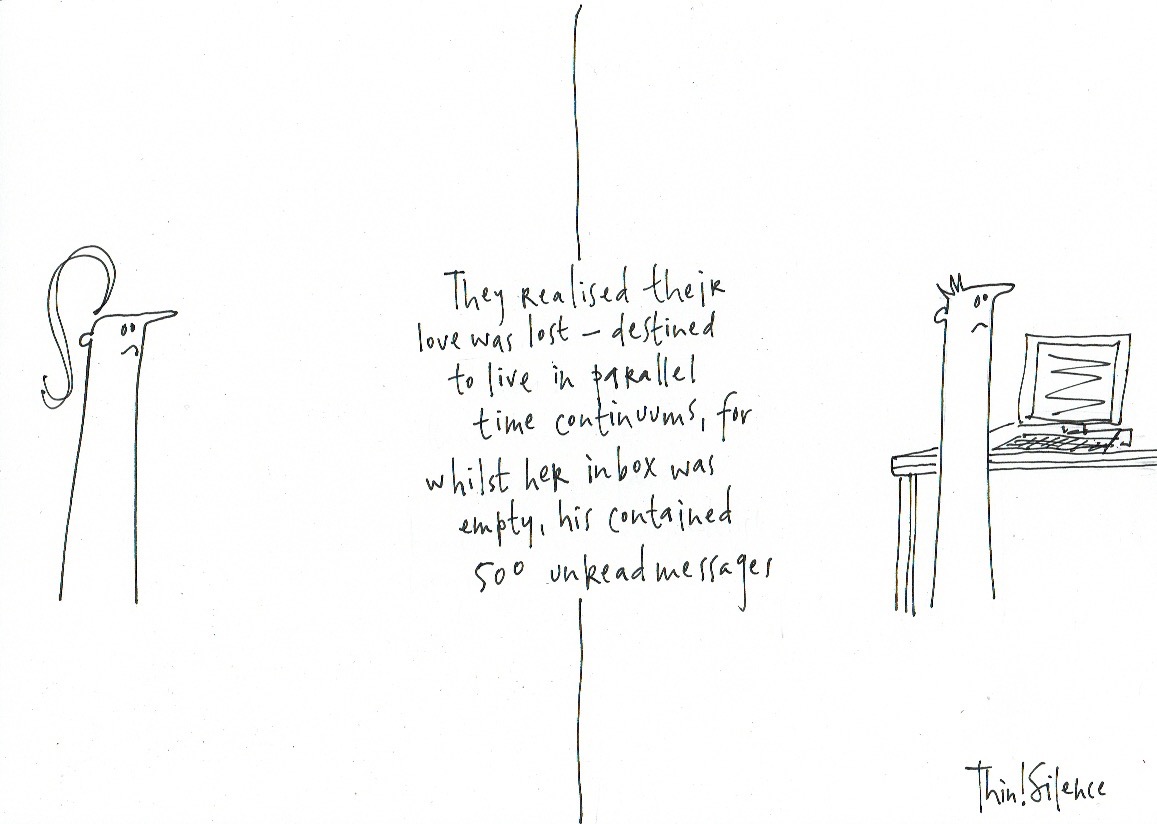 They realised their
love was lost – destined
to live in parallel
time continuums, for
whilst her inbox was
empty, his contained
500 unread messages
Thin!Silence